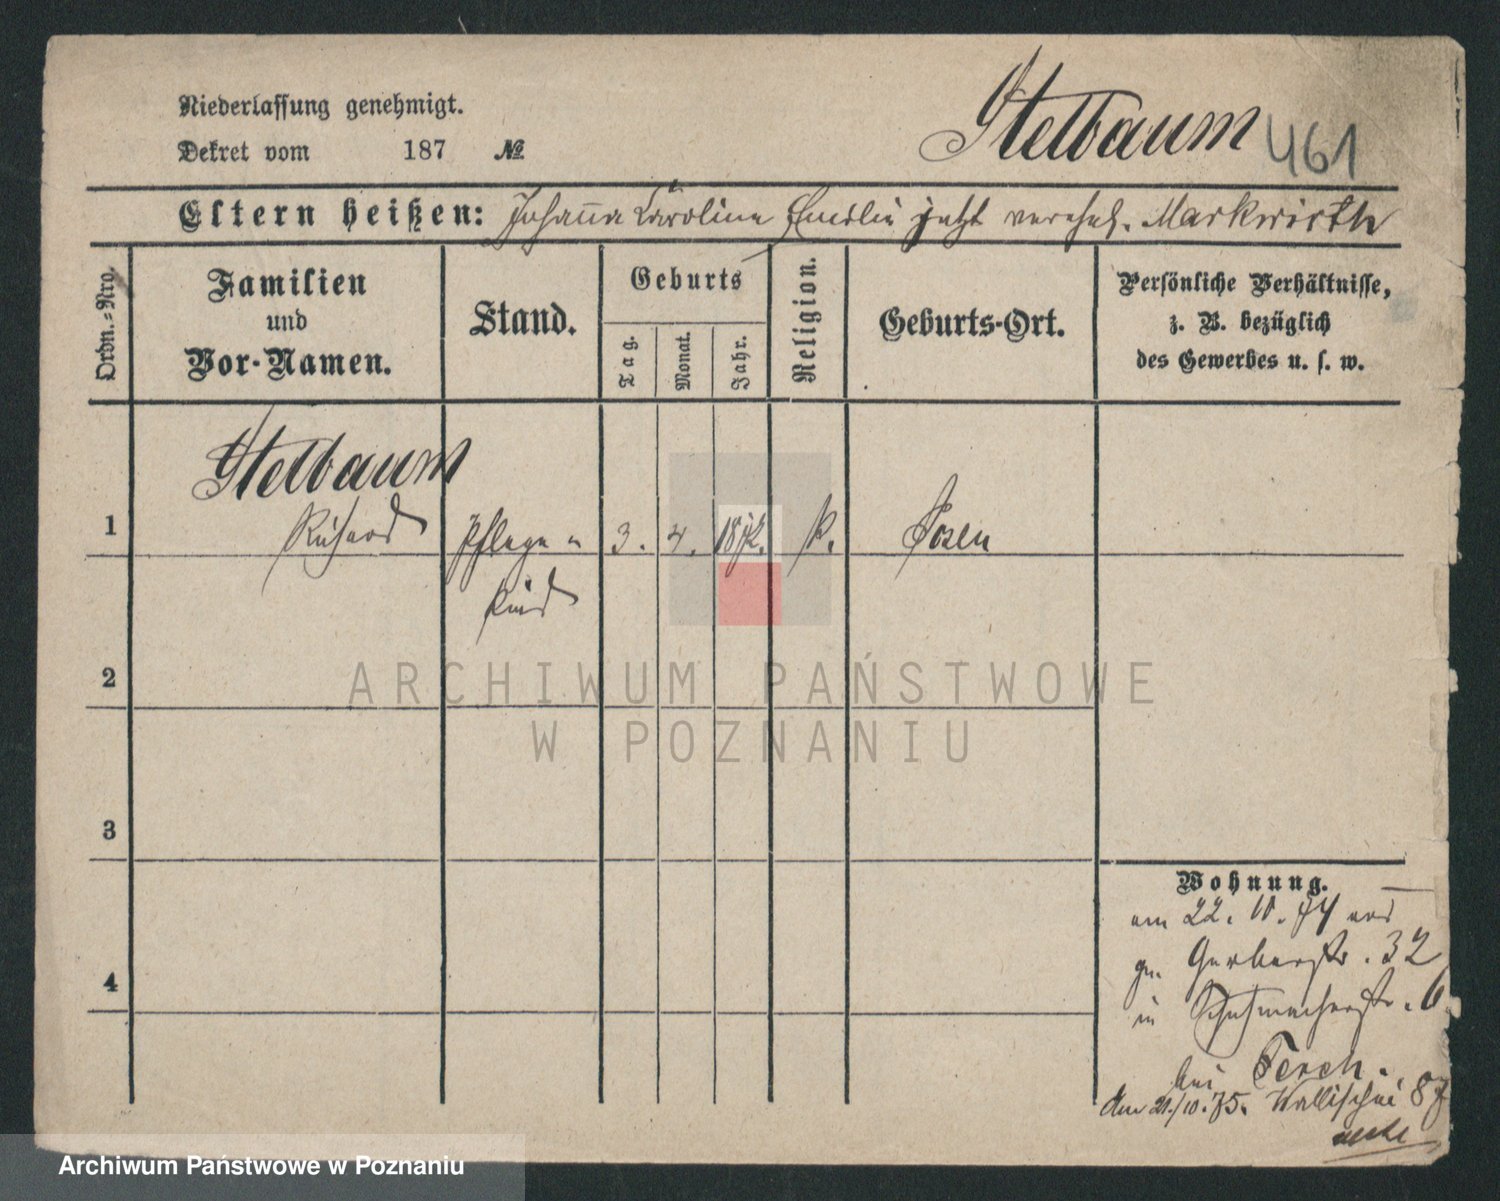 Niederlassung genehmigt.
Dekret vom 187 №
Stelbaum 461
Eltern heißen: Johanna Caroline Emilie jetzt verehel. Markwirth
Ordn.-Nro.
Familien
und
Vor-Namen.
Stand.
Geburts
Tag.
Monat.
Jahr.
Religion.
Geburts-Ort.
Persönliche Verhältnisse,
z. B. bezüglich
des Gewerbes u. s. w.
Stelbaum
1 Richard Pflege- 3. 4. 1872. k. Posen
kind
2
3
4
Wohnung.
am 22. 10. 74
Gerberstr. 32
in Schuhmacherstr. 6
bei Ferch.
den 21/10. 75. Wallischei 87
ARCHIWUM PAŃSTWOWE
W POZNANIU
Archiwum Państwowe w Poznaniu